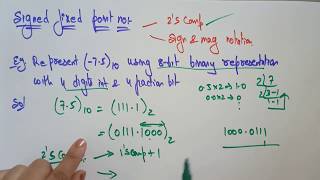 Signed fixed point no:-
→ 2's Comp
→ Sign & mag notation
Eg: Represent (-7.5)10 using 8-bit binary representation
with 4 digits int & 4 fraction bit
Sol (7.5)10 = (111.1)2
0.5x2 → 1.0
0.0x2 → 0
2|7
2|3-1
1-1
= (0111.1000)2
1000.0111
2's Comp → 1's comp + 1
→